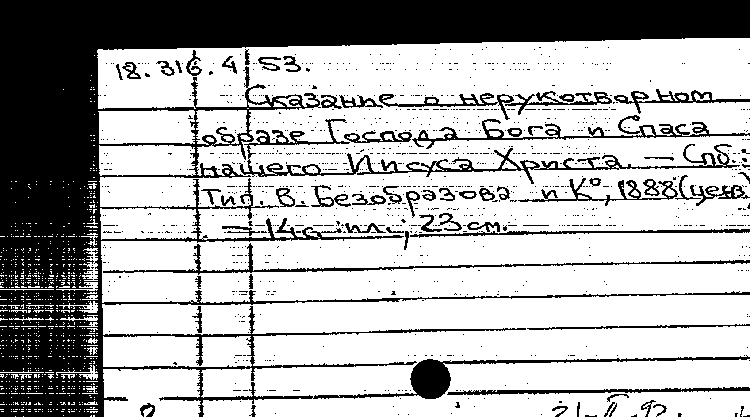 18.316.4.53.
Сказание о нерукотворном
образе Господа Бога и Спаса
нашего Иисуса Христа. — Спб.:
Тип. В. Безобразова и К°, 1888 (ценз
. — 14 с. :ил.; 23 см.